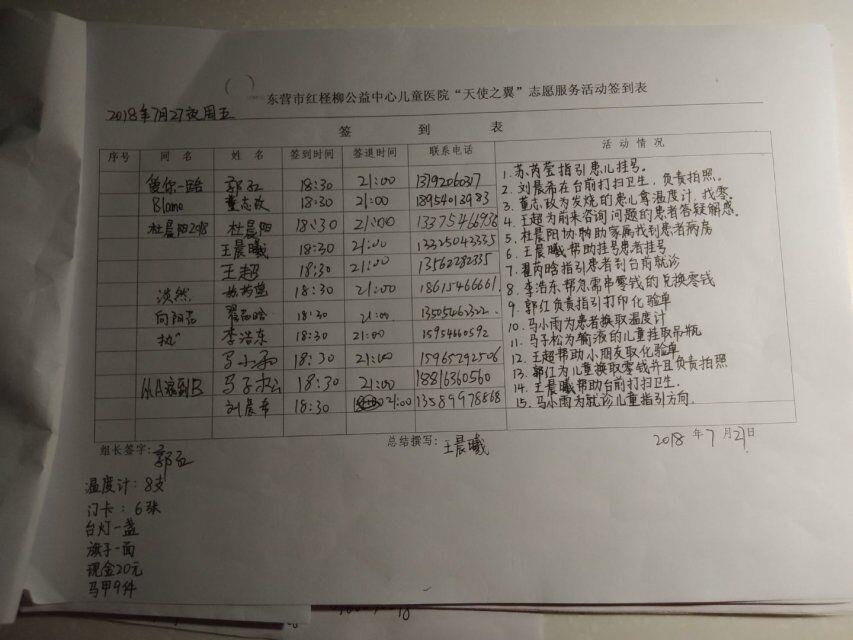 ( )
东营市红柽柳公益中心儿童医院“天使之翼”志愿服务活动签到表
2018年7月27夜周五
签 到 表
序号 网名 姓名 签到时间 签退时间 联系电话 活动情况
爱你一路 郭红 18:30 21:00
Blame 董志政 18:30 21:00
杜晨阳 杜晨阳 18:30 21:00
王晨曦 18:30 21:00
王超 18:30 21:00 13562282335
淡然 苏芮莹 18:30 21:00 18615466661
向阳花 翟芮晗 18:30 21:00
李浩东 18:30 21:00 15954660592
马小雨 18:30 21:00 15965292506
从A滚到B 马子松 18:30 21:00 18816360560
刘晨希 18:30 21:00 13589978868
1. 苏芮莹指引患儿挂号。
2. 刘晨希在台前打扫卫生,负责拍照。
3. 董志政为发烧的患儿拿温度计,找零。
4. 王超为前来咨询问题的患者答疑解惑。
5. 杜晨阳协助家属找到患者病房
6. 王晨曦帮助挂号患者挂号
7. 翟芮晗指引患者到台前就诊
8. 李浩东帮忽需串零钱的兑换零钱
9. 郭红负责指引打印化验单
10. 马小雨为患者换取温度计
11. 马子松为输液的儿童挂取吊瓶
12. 王超帮助小朋友取化验单
13. 郭红为儿童换取零钱并且负责拍照
14. 王晨曦帮助台前打扫卫生.
15. 马小雨为就诊儿童指引方向.
组长签字: 郭红
总结撰写: 王晨曦
2018 年 7 月 27日
温度计: 8支
门卡: 6张
台灯一盏
旗子一面
现金20元
马甲9件